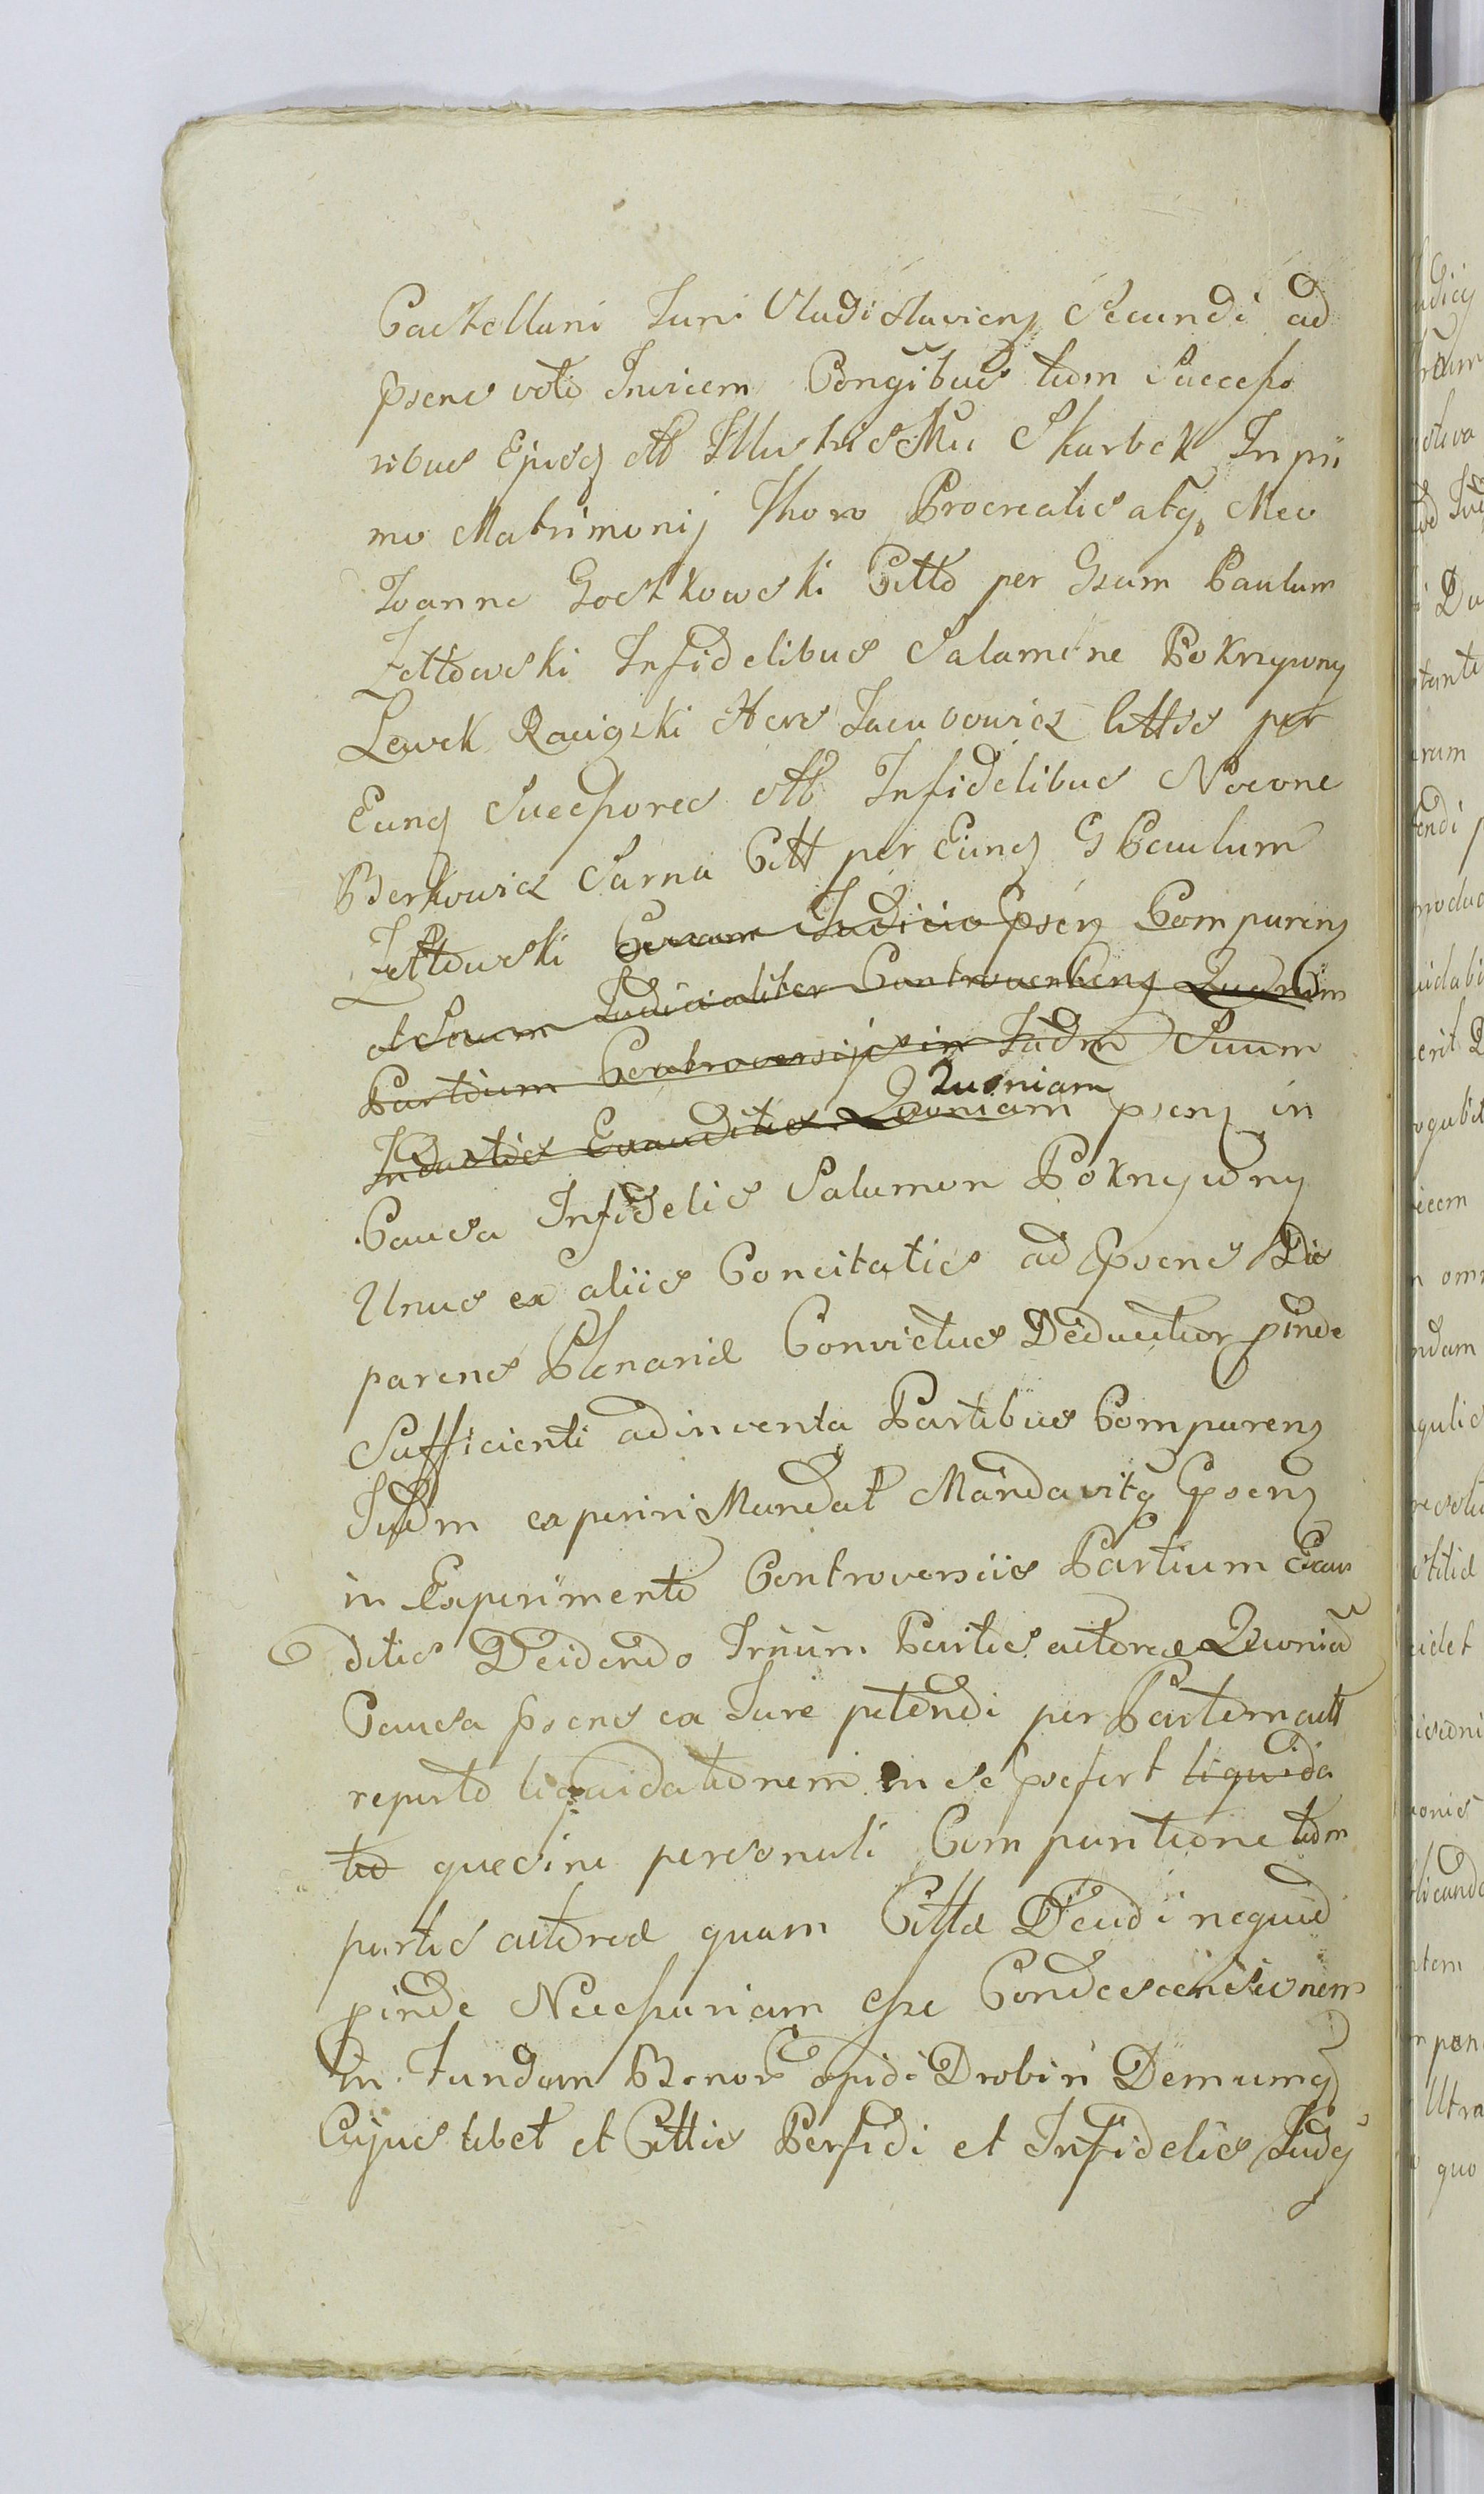 Castellani Juni Vladislaviens Secundi ad
psens voto Invicem Congibus tum Successo
ribus Ejusq ab Illustris Mu Skarbek In pri
mo Matrimonij thoro Procreatis atq Meo
Joanne Gostkowski Citto per Gsum Paulum
Zettowski Infidelibus Salamone Pokrzywny
Lewek Raciąski Hers Jacubowicz littis per
Eunq Successores ab Infidelibus
Berkowicz Sarna Citt per Eunq G Paulum
Zettowski Coram Judicio psenz Comparenz
et Suum Judicialiter Controvertenz
Partium Controversijs in Judm Suum
Inductis Exauditis Quoniam Quoniam psenz in
Causa Infidelis Salamon Pokrzywny
Unus ex aliis Concitatis ad psens Dis
parens Plenarie Convictus Deducitur pinde
Sufficienti adinventa Partibus Comparenz
Judm experiri Mandat Mandavitq psenz
in Experimento Controversiis Partium Exau
ditis Deidendo Irium Partis actorae Quoniã
Causa psens ex Jure petendi per Partem actt
reperto liquidationem in se psefert liquida
tio quesine personali Compuntione tum
partis actorae quam Cittae Deudi nequid
pinde Necessariam esse Condescensionem
in fundum Bonor opidi Drobin Demumq
Cujus libet et Cittis Perfidi et Infidelis Judej